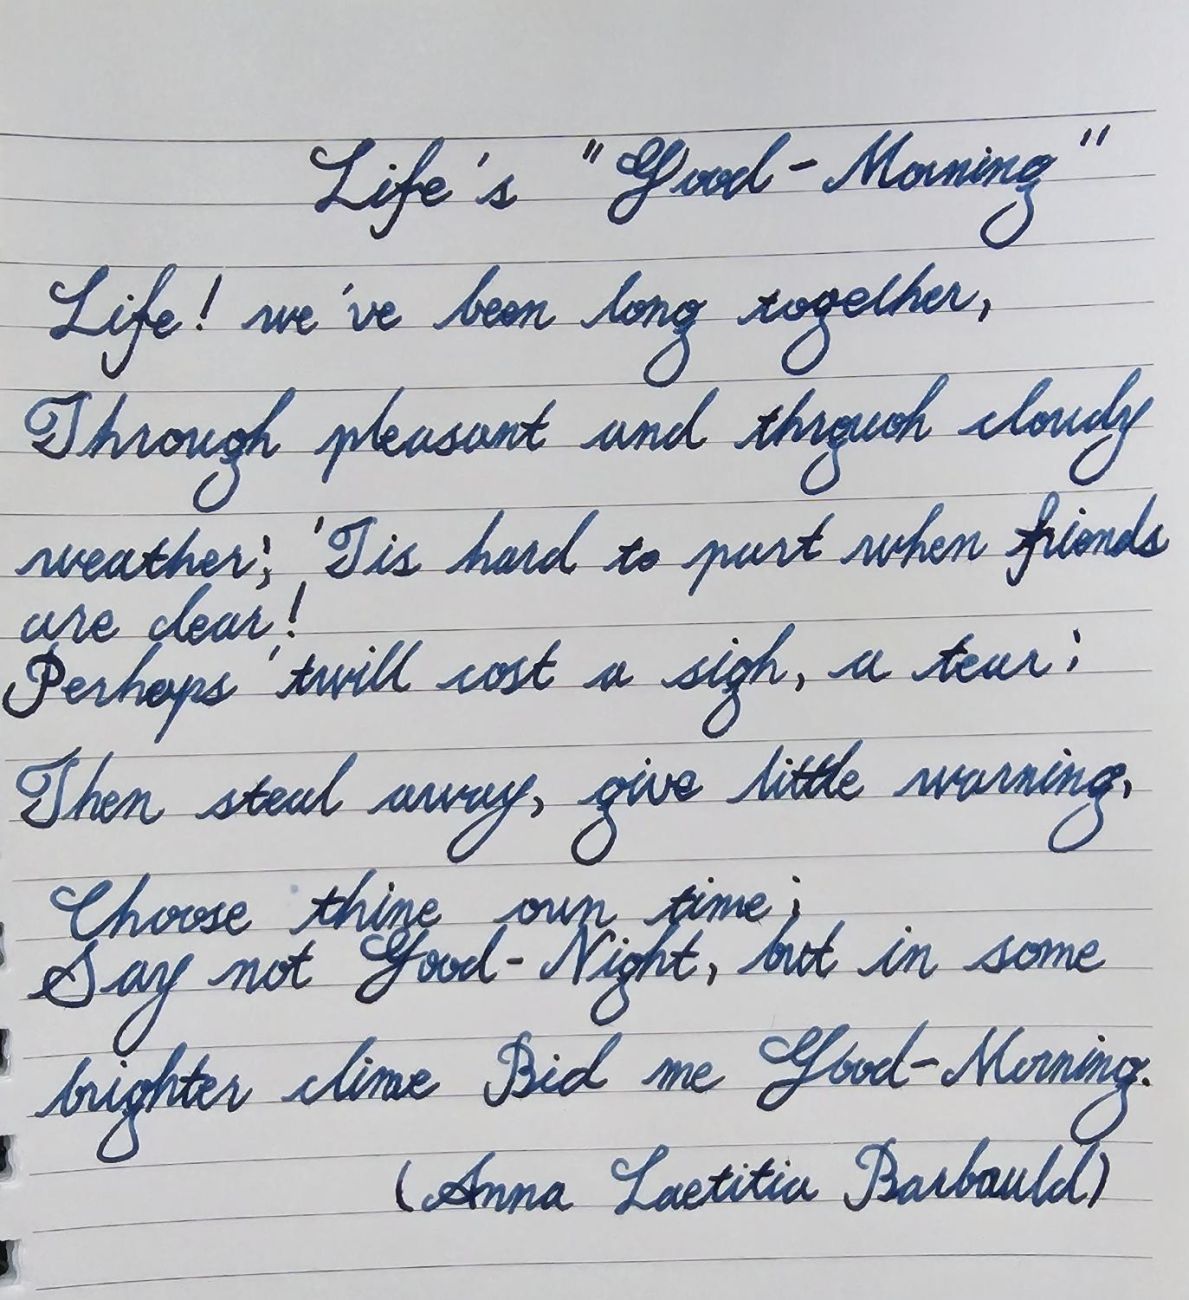 Life's "Good-Morning"
Life! we've been long together,
Through pleasant and through cloudy
weather; 'Tis hard to part when friends
are dear!
Perhaps 'twill cost a sigh, a tear;
Then steal away, give little warning,
Choose thine own time;
Say not Good-Night, but in some
brighter clime Bid me Good-Morning.
(Anna Laetitia Barbauld)